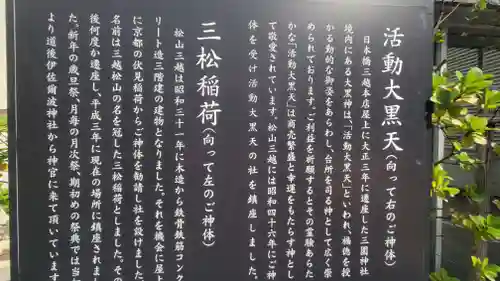 活動大黒天(向って右のご神体)
日本橋三越本店屋上に大正三年に遷座した三囲神社
境内にある大黒神は、「活動大黒天」といわれ、福徳を授
かる動的な御姿をあらわし、台所を司る神として広く崇
められております。ご利益を祈願するとその霊験あらた
かな「活動大黒天」は商売繁盛と幸運をもたらす神とし
て敬愛されています。松山三越には昭和四十六年にご神
体を受け活動大黒天の社を鎮座しました。
三松稲荷(向って左のご神体)
松山三越は昭和三十一年に木造から鉄骨鉄筋コンク
リート造三階建の建物となりました。それを機会に屋上
に京都の伏見稲荷からご神体を勧請し社を設けました。
名前は三越松山の名を冠した三松稲荷としました。その
後何度か遷座し、平成三年に現在の場所に鎮座されまし
た。新年の歳旦祭、月毎の月次祭、期初めの祭典では当
より道後伊佐爾波神社から神官に来て頂いています